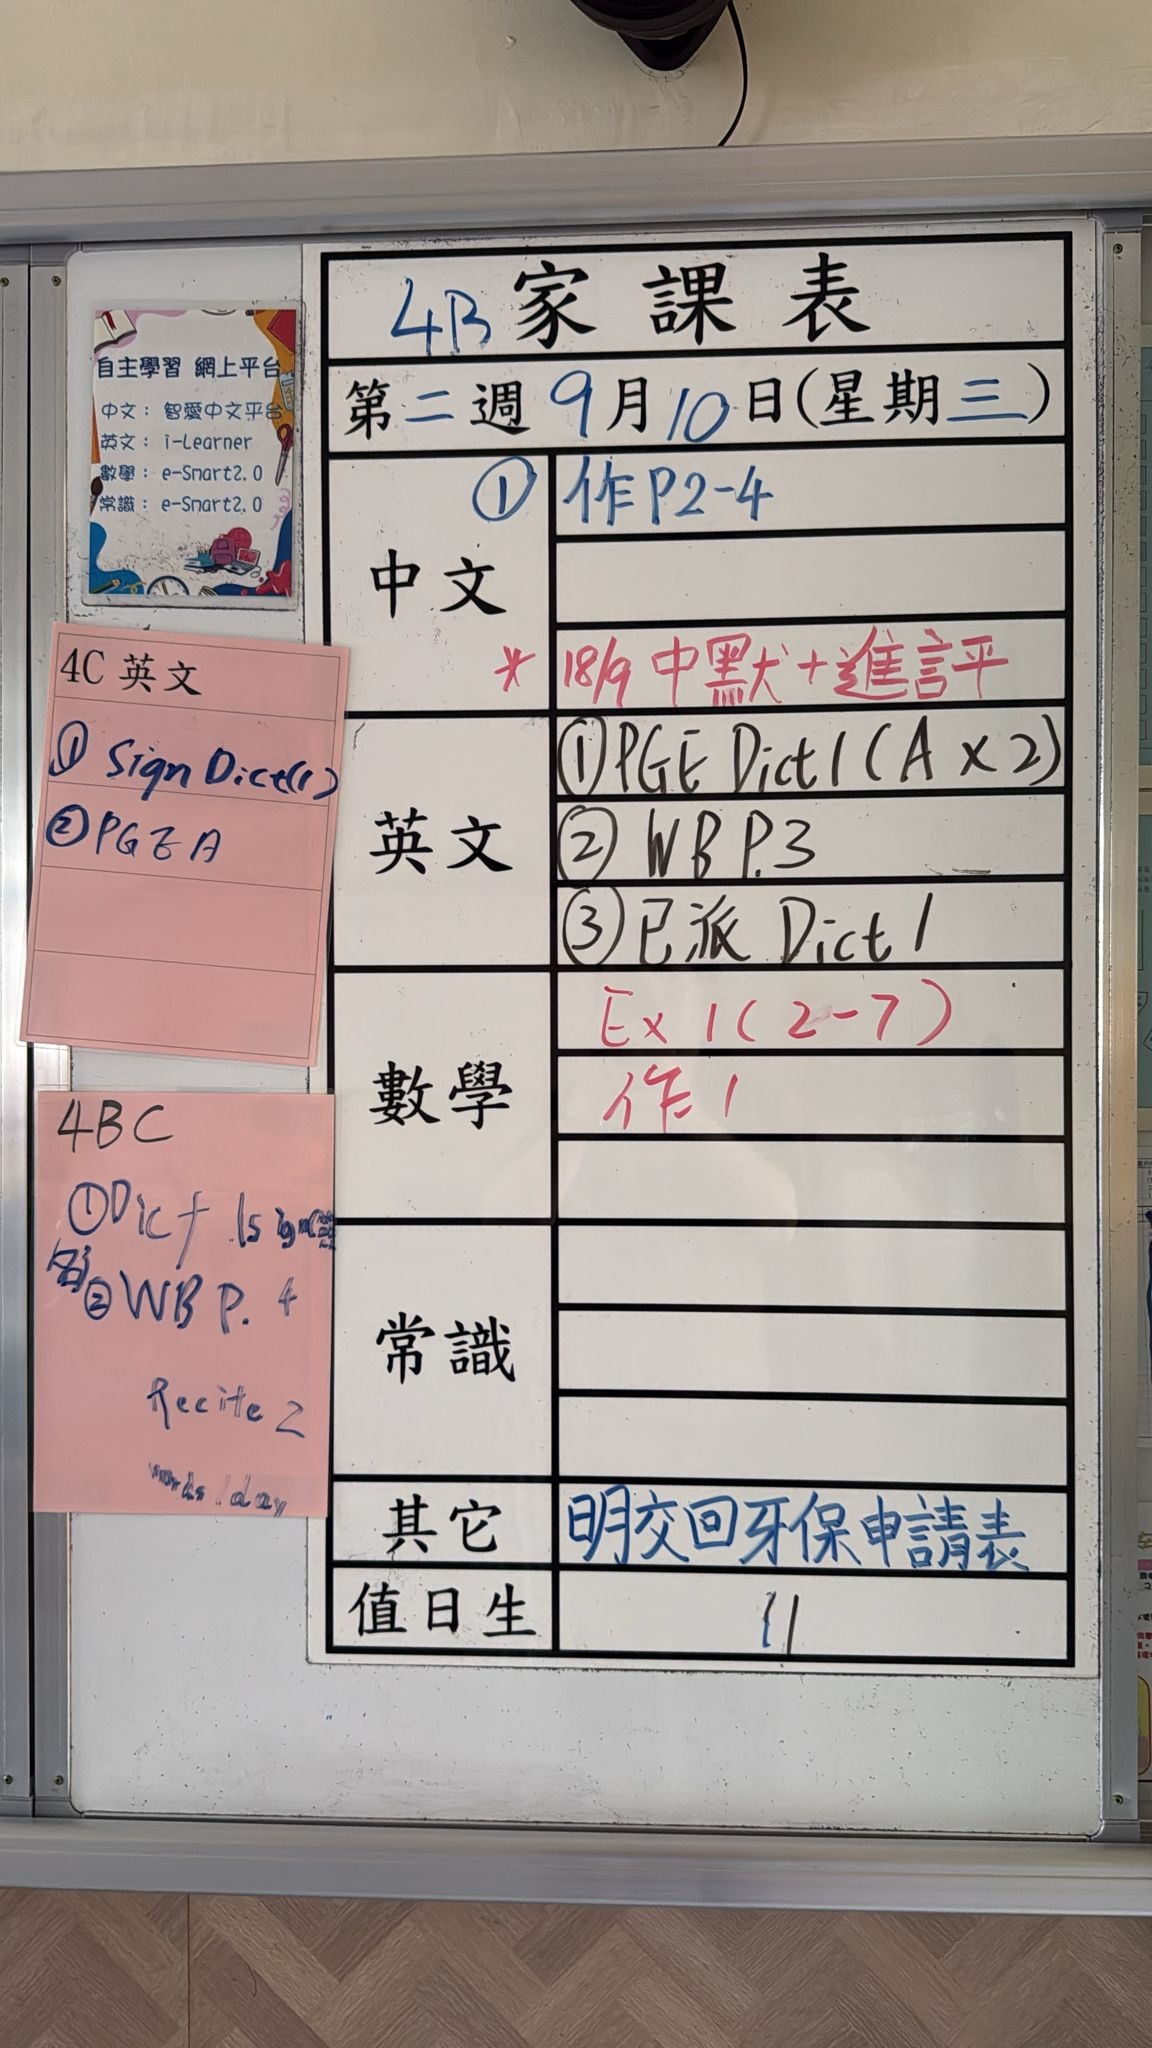 4B 家課表
第二週 9月10日(星期三)
中文
① 作P2-4
* 18/9 中默+進評
英文
① PGE Dict 1 (A x 2)
② WB P.3
③ 已派 Dict 1
數學
Ex 1 (2-7)
作 1
常識
其它
明交回牙保申請表
值日生
11
自主學習 網上平台
中文: 智愛中文平台
英文: i-Learner
數學: e-Smart2.0
常識: e-Smart2.0
4C 英文
① Sign Dict(1)
② PGE A
4BC
① Dict 1 sign
② WB P. 4
Recite 2
words / day